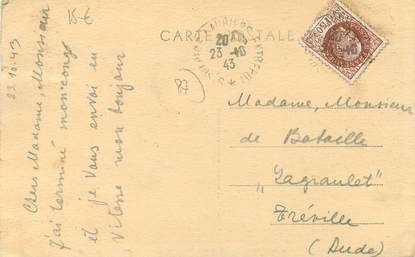 15 €
CARTE POSTALE
20
23 -10
43
87
23.10.43
Chers Madame, Monsieur
J'ai terminé mon congé
et je vous envoi en
vitesse mon bonjour
Madame, Monsieur
de Bataille
"Lagraulet"
Tréville
(Aude)